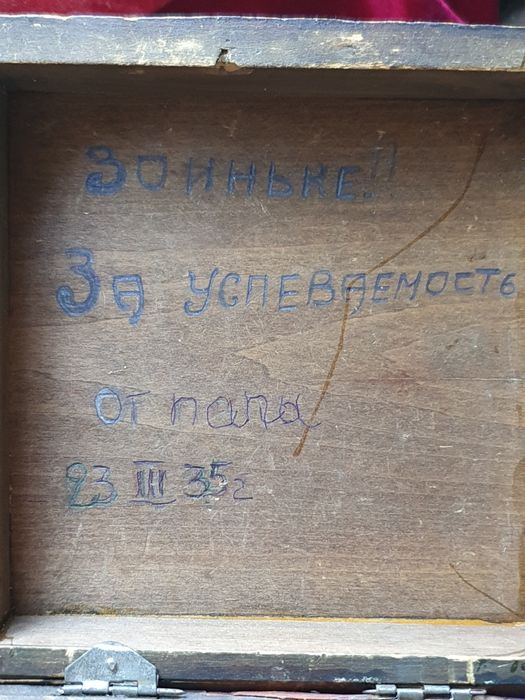 Зоиньке!!
За успеваемость
от папа
23 III 35г